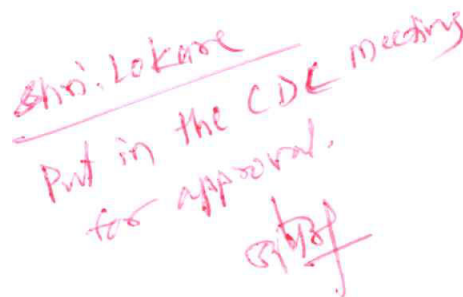 Shri. Lokare
Put in the CDC meeting
for approval.